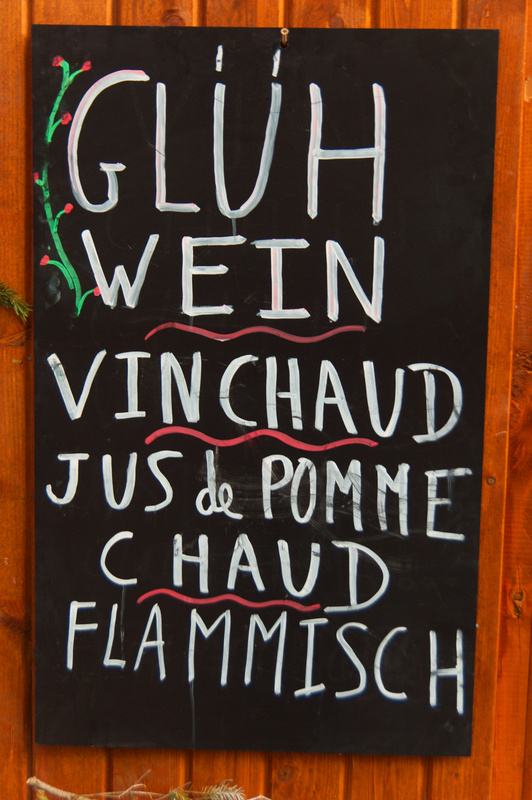 GLÜH
WEIN
VIN CHAUD
JUS de POMME
CHAUD
FLAMMISCH